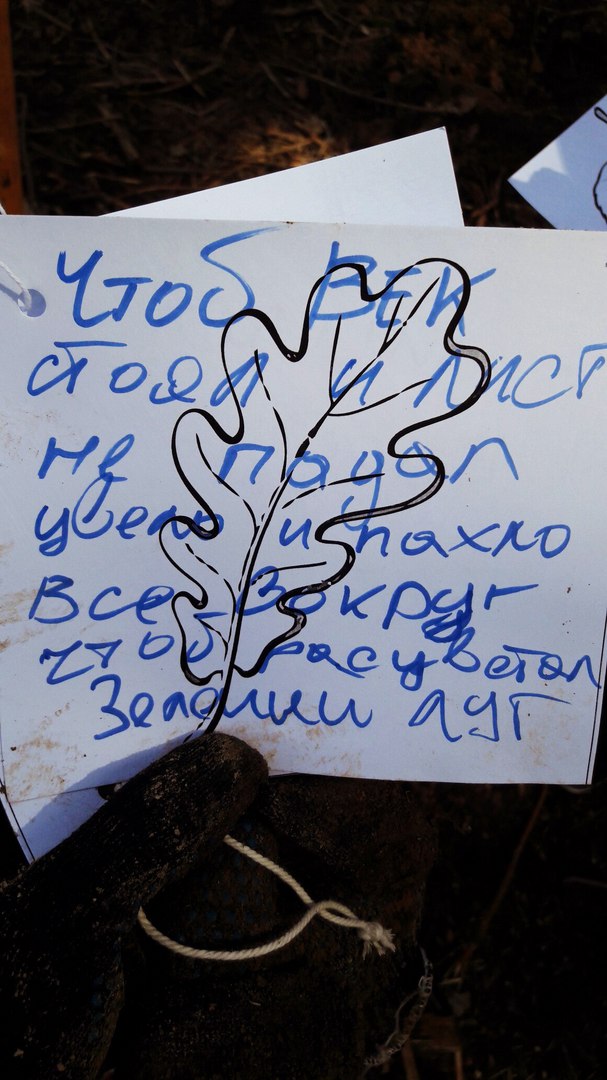 Чтоб ВЕК
стоял и лист
не падал
цвело и пахло
все вокруг
чтоб расцветал
Зеленый луг